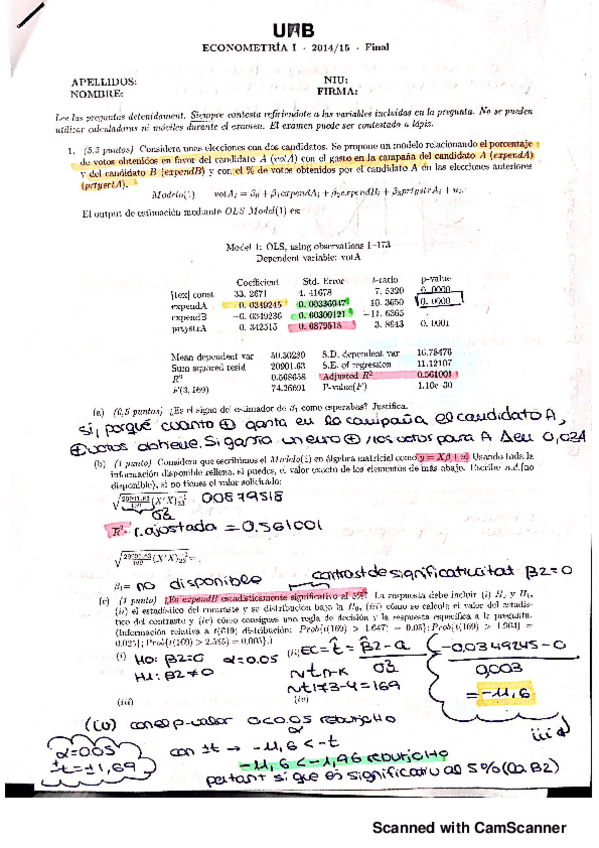 UAB
ECONOMETRÍA I · 2014/15 · Final
APELLIDOS: NIU:
NOMBRE: FIRMA:
Lee las preguntas detenidament. Siempre contesta refiriéndote a las variables incluidas en la pregunta. No se pueden
utilizar calculadoras ni móviles durante el examen. El examen puede ser contestado a lápiz.
1. (5.5 puntos) Considera unas elecciones con dos candidatos. Se propone un modelo relacionando el porcentaje
de votos obtenidos en favor del candidato A (votA) con el gasto en la campaña del candidato A (expendA)
y del candidato B (expendB) y con el % de votos obtenidos por el candidato A en las elecciones anteriores
(prtystrA).
Modelo(1) votAᵢ = β₀ + β₁expendAᵢ + β₂expendBᵢ + β₃prtystrAᵢ + uᵢ
El output de estimación mediante OLS Model(1) es:
Model 1: OLS, using observations 1–173
Dependent variable: votA
Coefficient Std. Error t-ratio p-value
[1ex] const 33.2671 4.41678 7.5320 0.0000
expendA 0.0349245 0.00336947 10.3650 0.0000
expendB −0.0349236 0.00300121 −11.6365
prtystrA 0.342515 0.0879518 3.8943 0.0001
Mean dependent var 50.50289 S.D. dependent var 16.78476
Sum squared resid 20901.63 S.E. of regression 11.12107
R² 0.568658 Adjusted R² 0.561001
F(3, 169) 74.26691 P-value(F) 1.10e–30
(a) (0,5 puntos) ¿Es el signo de estimador de β₁ como esperabas? Justifica.
Sí, porque cuanto ⊕ gasta en la campaña el candidato A,
⊕ votos obtiene. Si gasto un euro ⊕ los votos para A Δ en 0,034
(b) (1 punto) Considera que escribimos el Modelo(1) en álgebra matricial como y = Xβ + u. Usando toda la
información disponible rellena, si puedes, el valor exacto de los elementos de más abajo. Escribe n.d.(no
disponible), si no tienes el valor solicitado:
00879518
R²- r. ajustada = 0.561001
β₁= no disponible contrast de significativitat β2=0
(c) (1 punto) ¿Es expendB estadísticamente significativo al 5%? La respuesta debe incluir (i) H₀ y H₁,
(ii) el estadístico del contraste y su distribución bajo la H₀, (iii) cómo se calcula el valor del estadís-
tico del contraste y (iv) cómo consigues una regla de decisión y la respuesta específica a la pregunta.
(Información relativa a t(619) distribución: Prob[t(169) > 1.647] = 0.05; Prob[t(169) > 1.964] =
0.025; Prob[t(169) > 2.585] = 0.005.)
(i) H0: β2=0 α=0.05 (ii) EC = t = β̂2 − a
H1: β2≠0 N t n-k
N t 173-4 = 169
-0,0349245 - 0
0,003
= -11,6
(iii) (iv)
(iv) con el p-valor 0<0.05 rebutjo H0
α=0.05
±t=±1,69
con ±t → -11,6 < -t
-11,6 < -1,96 rebutjo H0
pertant sí que es significatiu al 5% (la B2)
Scanned with CamScanner